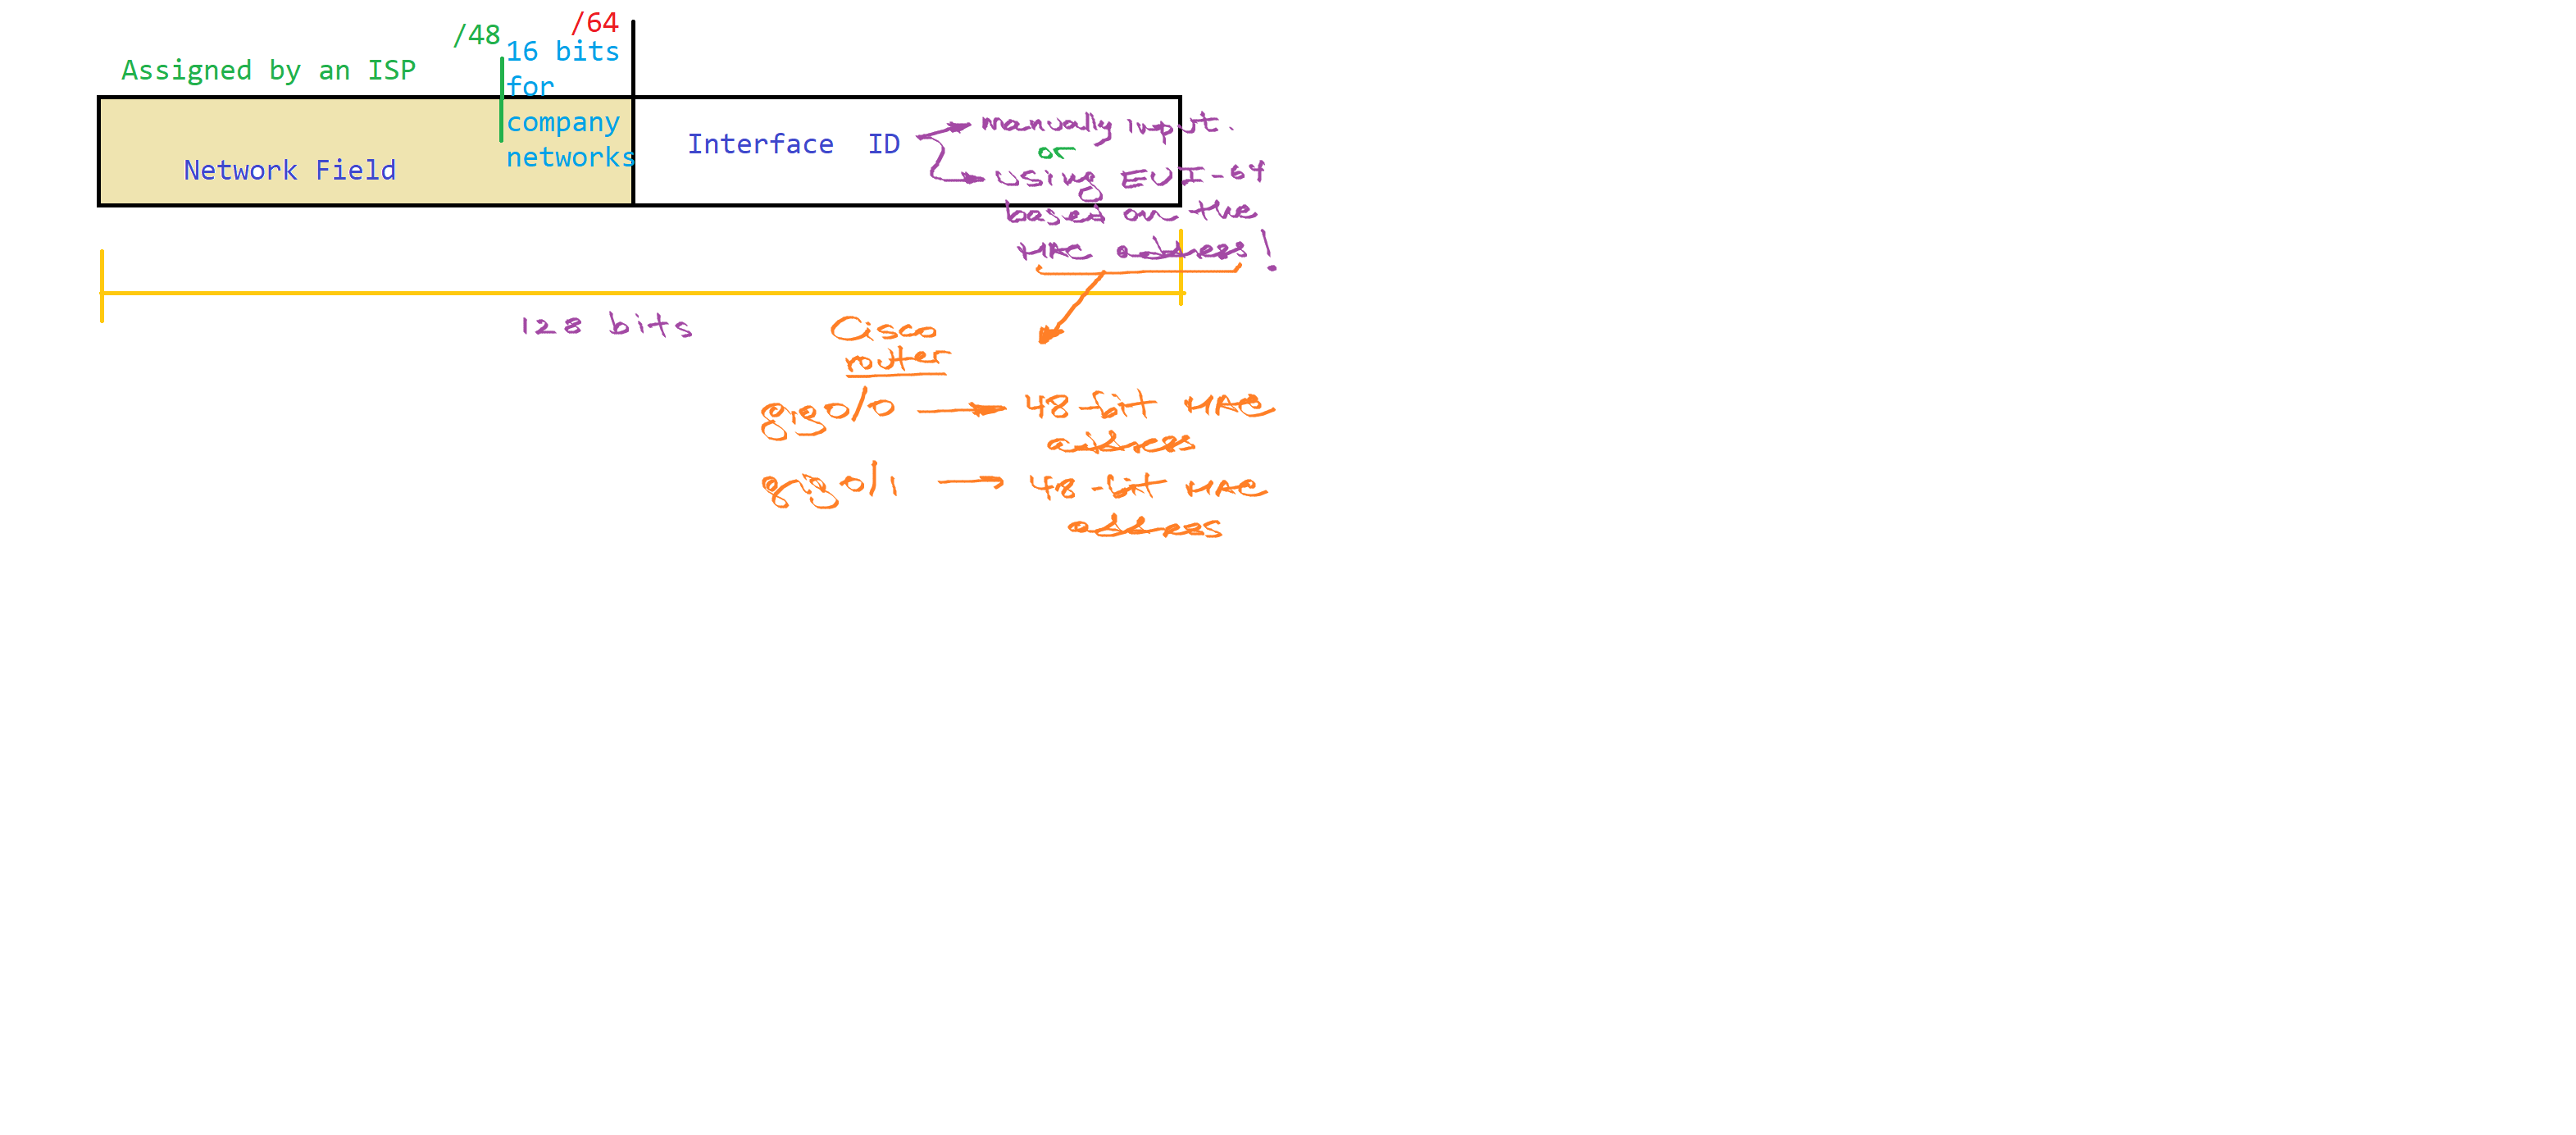 /64
/48
16 bits
for
Assigned by an ISP
company
networks
Network Field
Interface ID
manually input.
or
using EUI-64
based on the
MAC address!
128 bits
Cisco
router
gig0/0 48-bit MAC
address
gig0/1 48-bit MAC
address